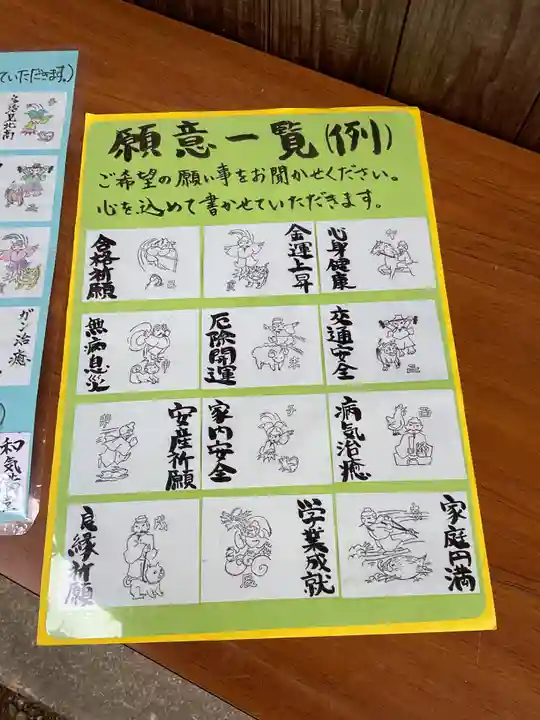 願意一覧(例)
ご希望の願い事をお聞かせください。
心を込めて書かせていただきます。
合格祈願
金運上昇
心身健康
無病息災
厄除開運
交通安全
安産祈願
家内安全
病気治癒
良縁祈願
学業成就
家庭円満
巳
寅
午
申
未
丑
卯
子
酉
戌
辰
亥
ていただきます。)
ガン治癒